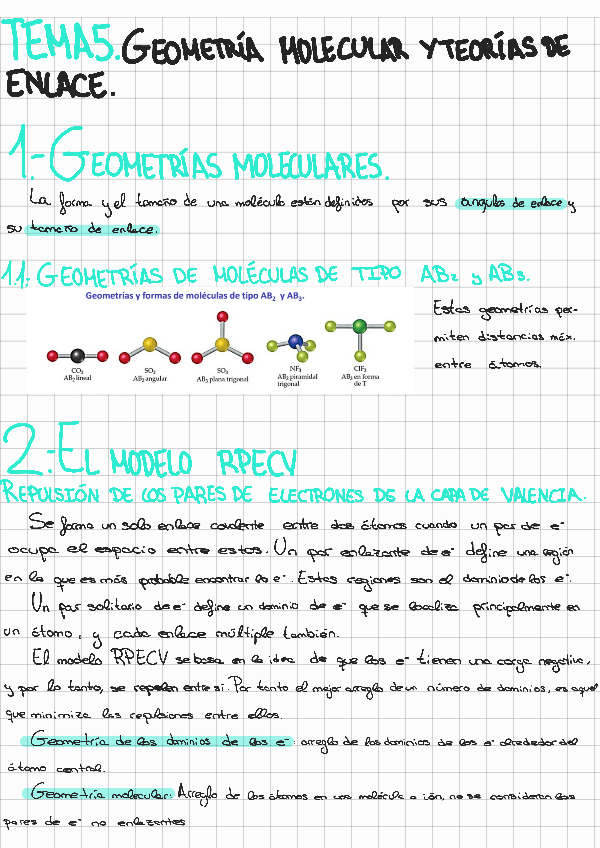 TEMA5. GEOMETRÍA MOLECULAR Y TEORÍAS DE
ENLACE.
1.- GEOMETRÍAS MOLECULARES.
La forma y el tamaño de una molécula están definidos por sus angulos de enlace y
su tamaño de enlace.
1.1. GEOMETRÍAS DE MOLÉCULAS DE TIPO AB2 y AB3.
Geometrías y formas de moléculas de tipo AB2 y AB3.
CO2
AB2 lineal
SO2
AB2 angular
SO3
AB3 plana trigonal
NF3
AB3 piramidal
trigonal
ClF3
AB3 en forma
de T
Estas geometrías per-
miten distancias máx.
entre átomos.
2.- EL MODELO RPECV
REPULSIÓN DE LOS PARES DE ELECTRONES DE LA CAPA DE VALENCIA.
Se forma un solo enlace covalente entre dos átomos cuando un par de e-
ocupa el espacio entre estos. Un par enlazante de e- define una región
en la que es más probable encontrar los e-. Estas regiones son el dominio de los e-.
Un par solitario de e- define un dominio de e- que se localiza principalmente en
un átomo, y cada enlace múltiple también.
El modelo RPECV se basa en la idea de que los e- tienen una carga negativa,
y por lo tanto, se repelen entre si. Por tanto el mejor arreglo de un número de dominios, es aquel
que minimiza las replsiones entre ellos.
Geometría de los dominios de los e-: arreglo de los dominios de los e- alrededor del
átomo central.
Geometría molecular: Arreglo de los átomos en una molécula o ión, no se consideran los
pares de e- no enlazantes